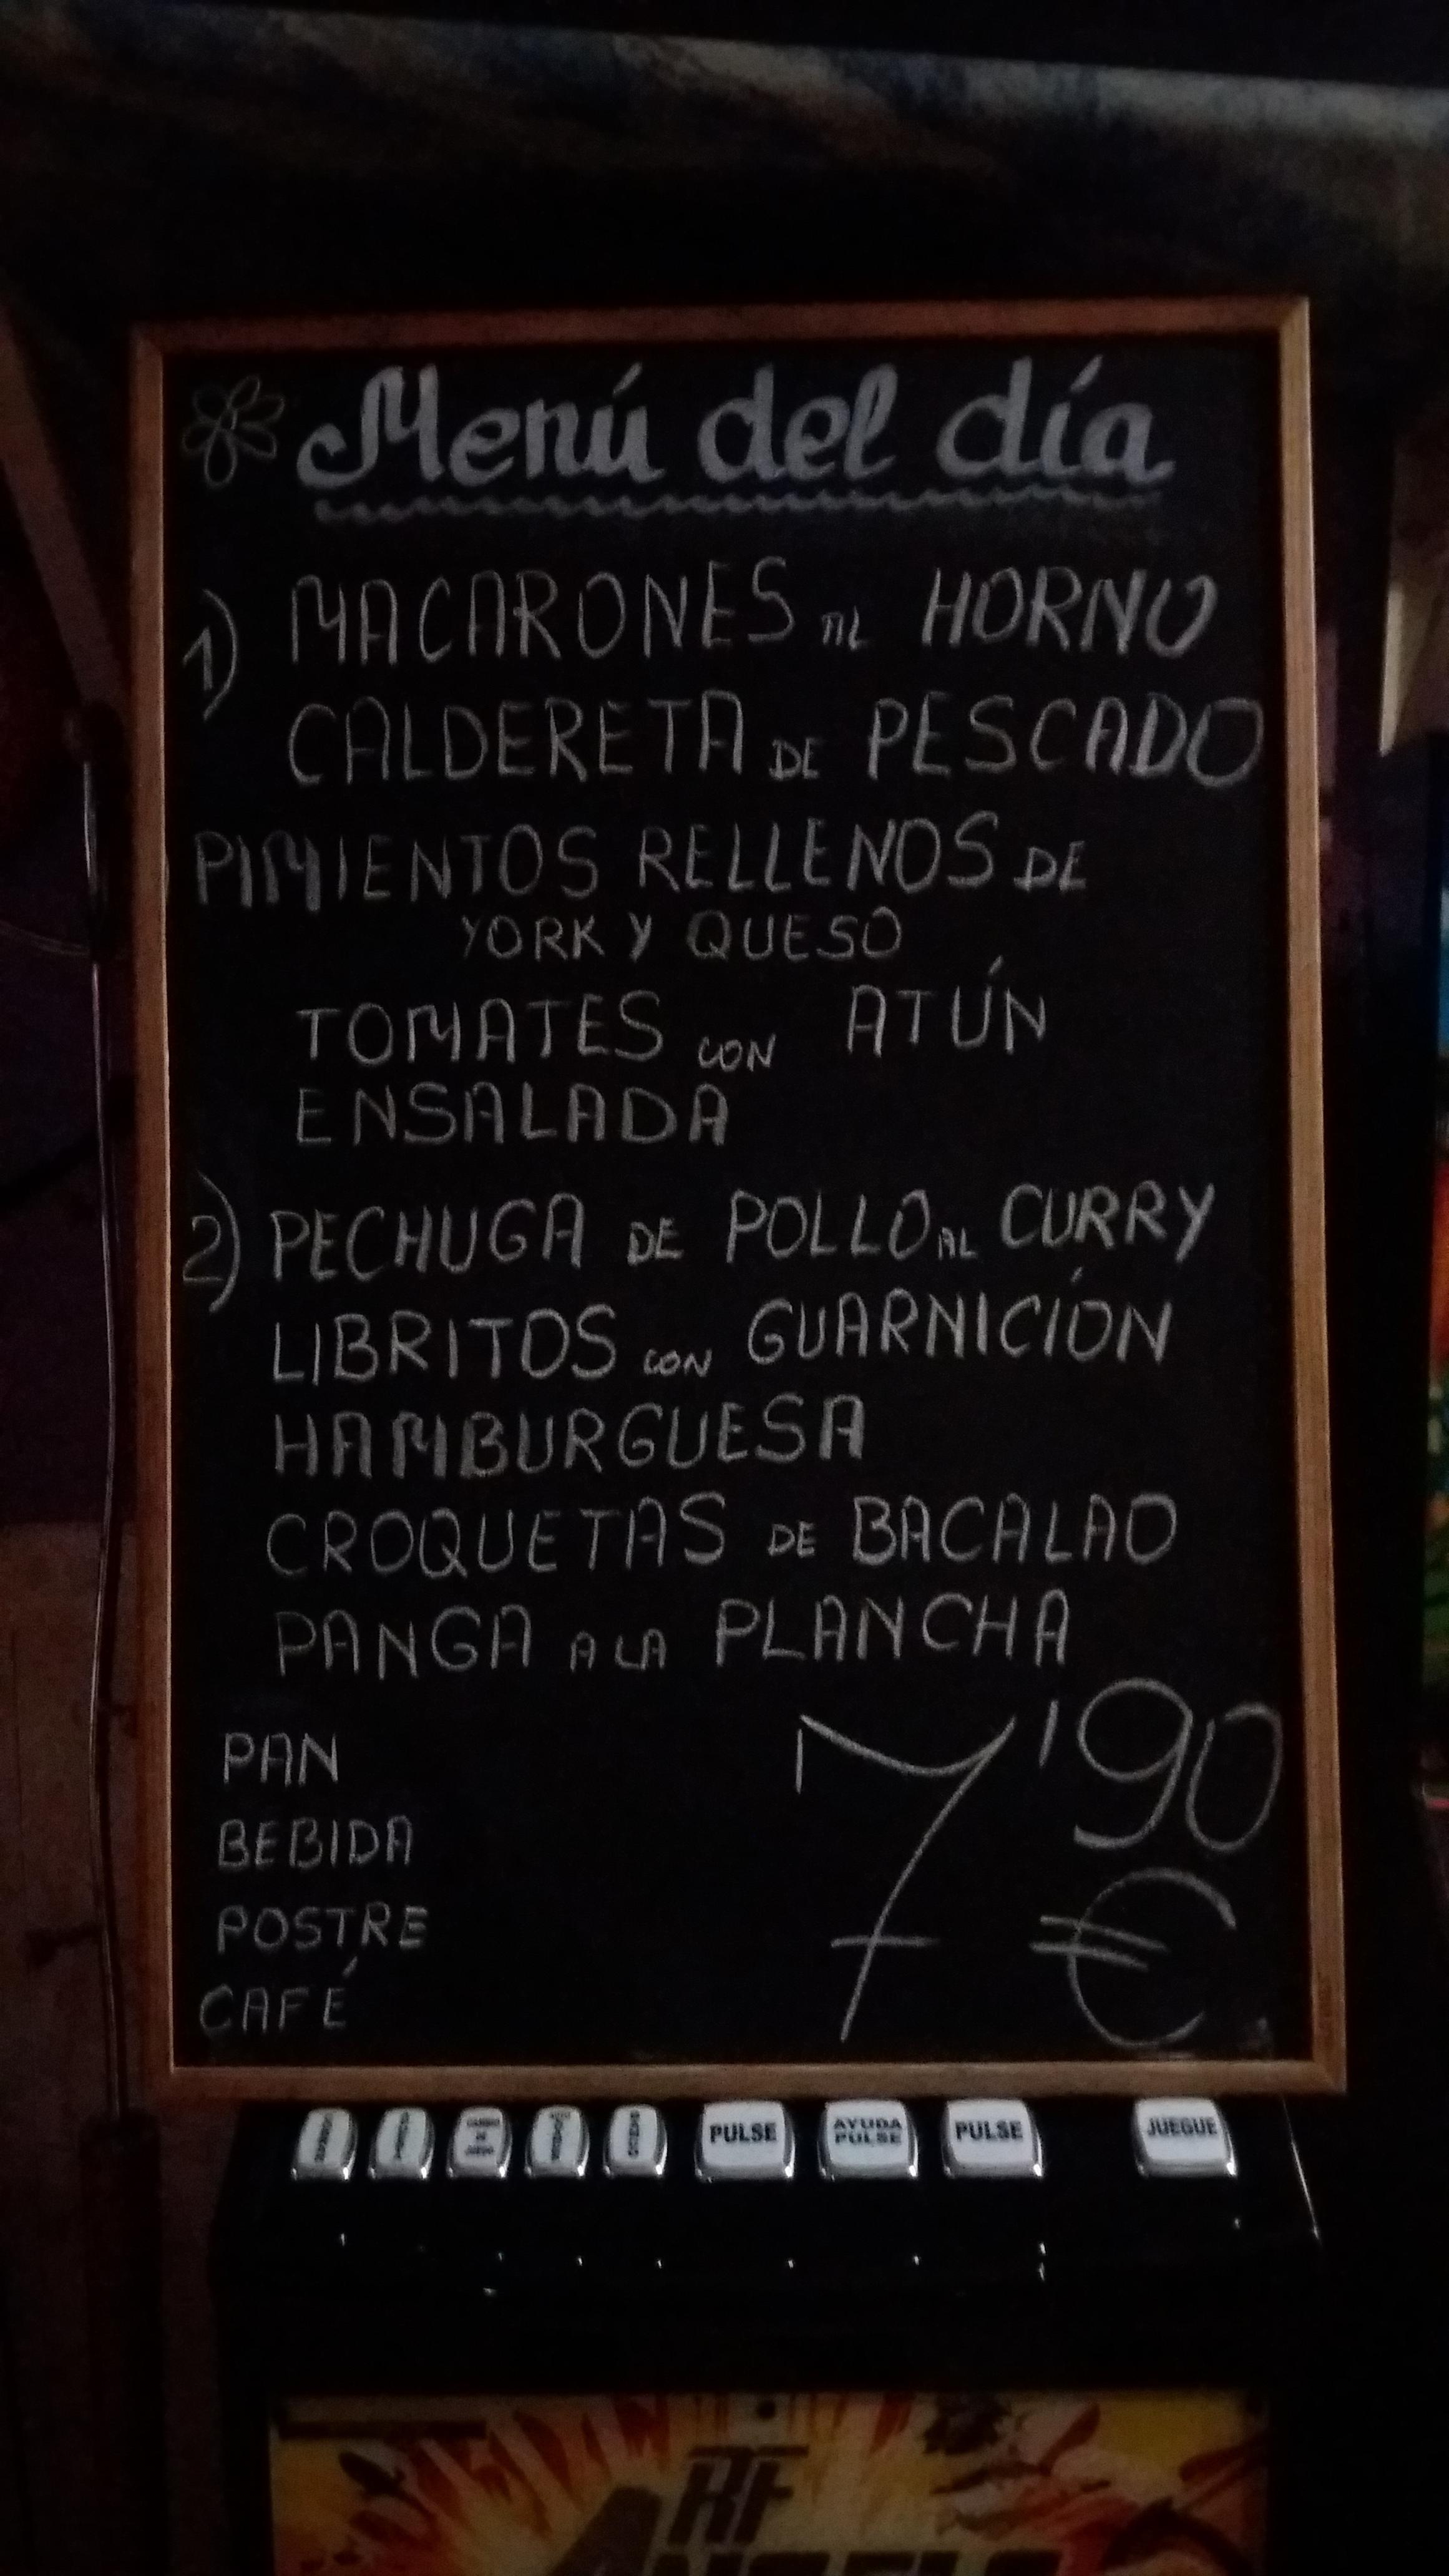 Menú del día
1) MACARONES AL HORNO
CALDERETA DE PESCADO
PIMIENTOS RELLENOS DE
YORK Y QUESO
TOMATES CON ATÚN
ENSALADA
2) PECHUGA DE POLLO AL CURRY
LIBRITOS CON GUARNICIÓN
HAMBURGUESA
CROQUETAS DE BACALAO
PANGA A LA PLANCHA
PAN
BEBIDA
POSTRE
CAFÉ
7'90
€
PULSE
AYUDA
PULSE
PULSE
JUEGUE
RF